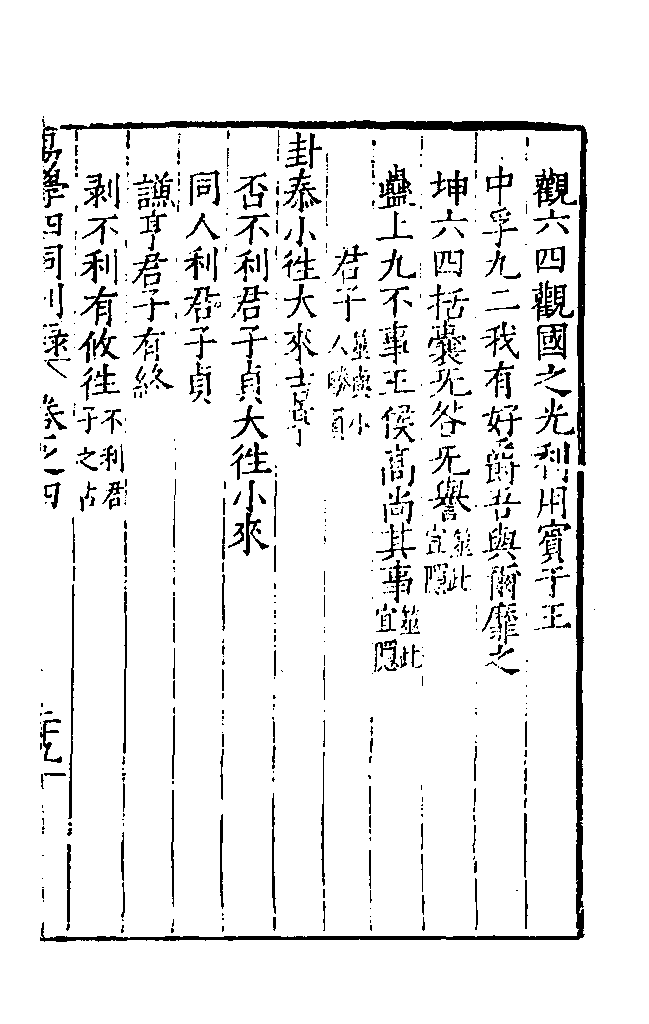 觀六四觀國之光利用賓于王
中孚九二我有好爵吾與爾靡之
坤六四括囊旡咎旡譽筮此宜隠
蠱上九不事王侯髙尚其事筮此宜隠
君子筮與小人時
卦泰小徃大來吉亨
否不利君子貞大徃小來
同人利君子貞
謙亨君子有終
剥不利有攸徃不利君子之占
易學四同别録 卷之四